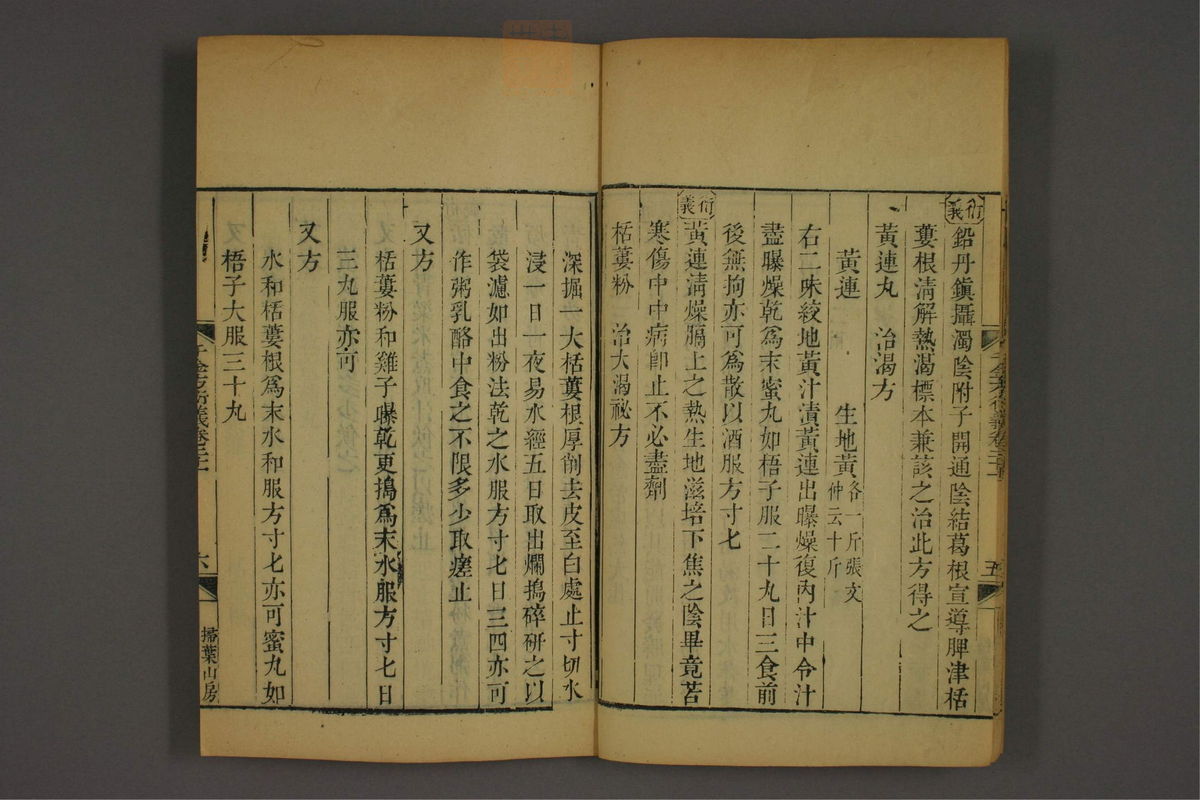 衍義
鉛丹鎭攝濁陰附子開通陰結葛根宣導脾津栝
蔞根淸解熱渴標本兼該之治此方得之
黃連丸　治渴方
黃連　生地黃各一斤張文仲云十斤
右二味絞地黃汁漬黃連出曝燥復內汁中令汁
盡曝燥乾爲末蜜丸如梧子服二十九日三食前
後無拘亦可爲散以酒服方寸匕
衍義
黃連淸燥膈上之熱生地滋培下焦之陰畢竟苦
寒傷中中病卽止不必盡劑
栝蔞粉　治大渴祕方
深掘一大栝蔞根厚削去皮至白處止寸切水
浸一日一夜易水經五日取出爛搗碎硏之以
袋濾如出粉法乾之水服方寸匕日三四亦可
作粥乳酪中食之不限多少取瘥止
又方
栝蔞粉和雞子曝乾更搗爲末水服方寸匕日
三丸服亦可
又方
水和栝蔞根爲末水和服方寸匕亦可蜜丸如
梧子大服三十丸
六
掃葉山房